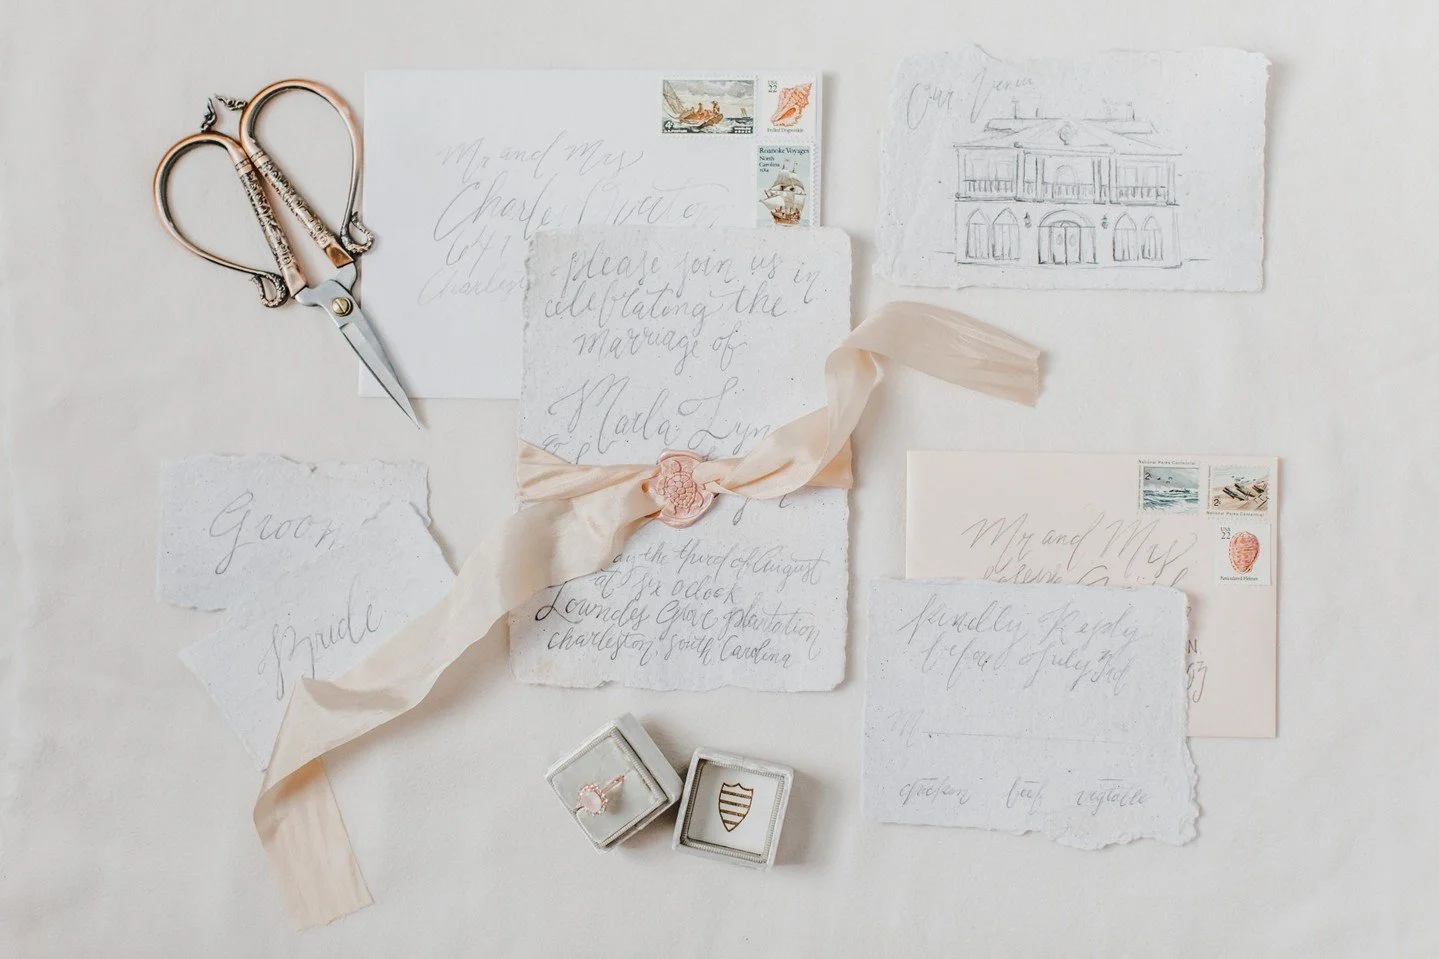 Mr and Mrs
Charles
Please join us in
celebrating the
marriage of
Marla Lyn
the third of August
at six o'clock
Lowndes Grove Plantation
Charleston, South Carolina
4¢
USA
22
Frilled Dogwinkle
Roanoke Voyages
North
Carolina
1584
Our Venue
Groom
Bride
National Parks Centennial
2¢
2¢
National Parks Centennial
USA
22
Reticulated Helmet
Mr and Mrs
Kindly Reply
before July 3rd
M
chicken beef vegetable